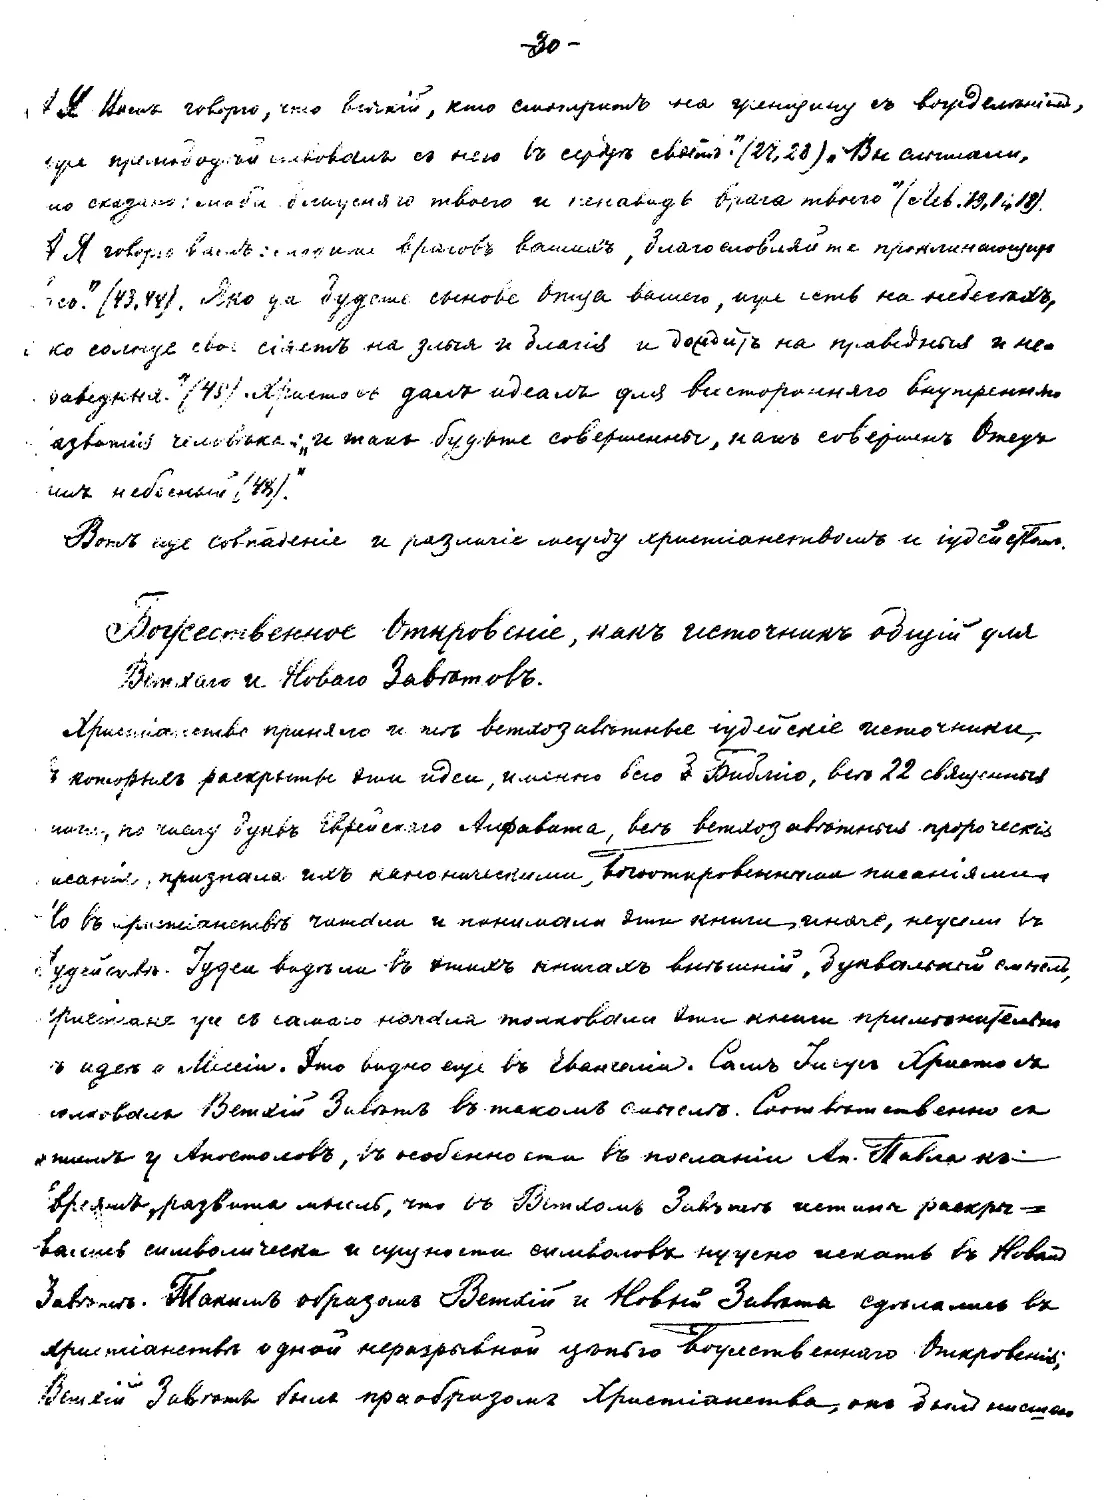 -30-
А Я Вамъ говорю, что всякій, кто смотритъ на женщину съ вожделѣніемъ,
уже прелюбодѣйствовалъ съ нею въ сердцѣ своемъ." (27, 28) „Вы слышали,
но сказано: люби ближняго твоего и ненавидь врага твоего" (Лев. 19, 18).
А Я говорю вамъ: любите враговъ вашихъ, благословляйте проклинающихъ
васъ." (43, 44). Яко да будете сынове Отца вашего, иже есть на небесѣхъ,
ко солнце свое сіяетъ на злыя и благія и дождитъ на праведныя и не-
раведныя." (45) Христосъ далъ идеалъ для всесторонняго внутренняго
азвитія человѣка: „и такъ будьте совершенны, какъ совершенъ Отецъ
ашъ небесный (48)."
Вотъ еще совпаденіе и различіе между христіанствомъ и іудействомъ.
Божественное Откровеніе, какъ источникъ общій для
Ветхаго и Новаго Завѣтовъ.
Христіанство приняло и тѣ ветхозавѣтные іудейскіе источники,
въ которыхъ раскрыты эти идеи, именно всю Библію, всѣ 22 священныя
ниги, по числу буквъ Еврейскаго Алфавита, всѣ ветхозавѣтныя пророческія
исанія, признала ихъ каноническими, богооткровенными писаніями.
Но въ христіанствѣ читали и понимали эти книги иначе, нежели въ
іудействѣ. Іудеи видѣли въ этихъ книгахъ внѣшній, буквальный смыслъ,
христіане уже съ самаго начала толковали эти книги примѣнительно
ъ идеѣ о Мессіи. Это видно еще въ Евангеліи. Самъ Іисусъ Христосъ
олковалъ Ветхій Завѣтъ въ такомъ смыслѣ. Соотвѣтственно съ
этимъ у Апостоловъ, въ особенности въ посланіи Ап. Павла къ
Евреямъ, развита мысль, что въ Ветхомъ Завѣтѣ истина раскры-
валась символически и сущности символовъ нужно искать въ Новомъ
Завѣтѣ. Такимъ образомъ Ветхій и Новый Завѣты сдѣлались въ
христіанствѣ одной неразрывной цѣпью Божественнаго Откровенія;
Ветхій Завѣтъ былъ праобразомъ Христіанства, онъ былъ